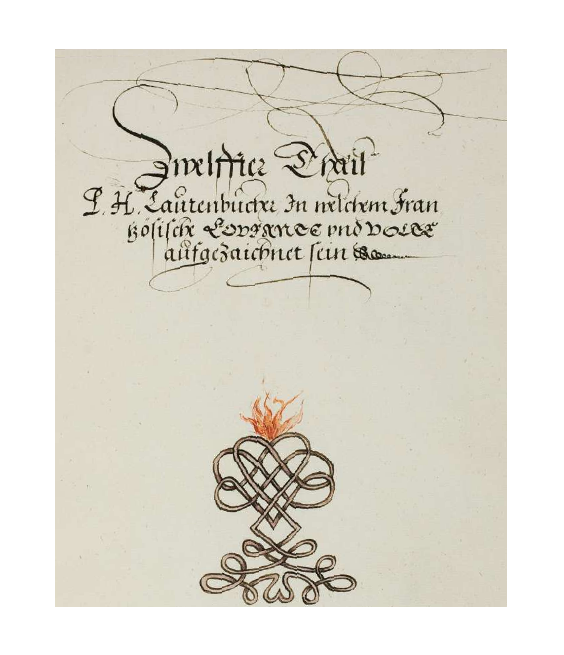 Zwelffter Thail
P. H. Lautenbücher In welchem Fran
tzösische COVRANTE vnd VOLTE
aufgezaichnet sein